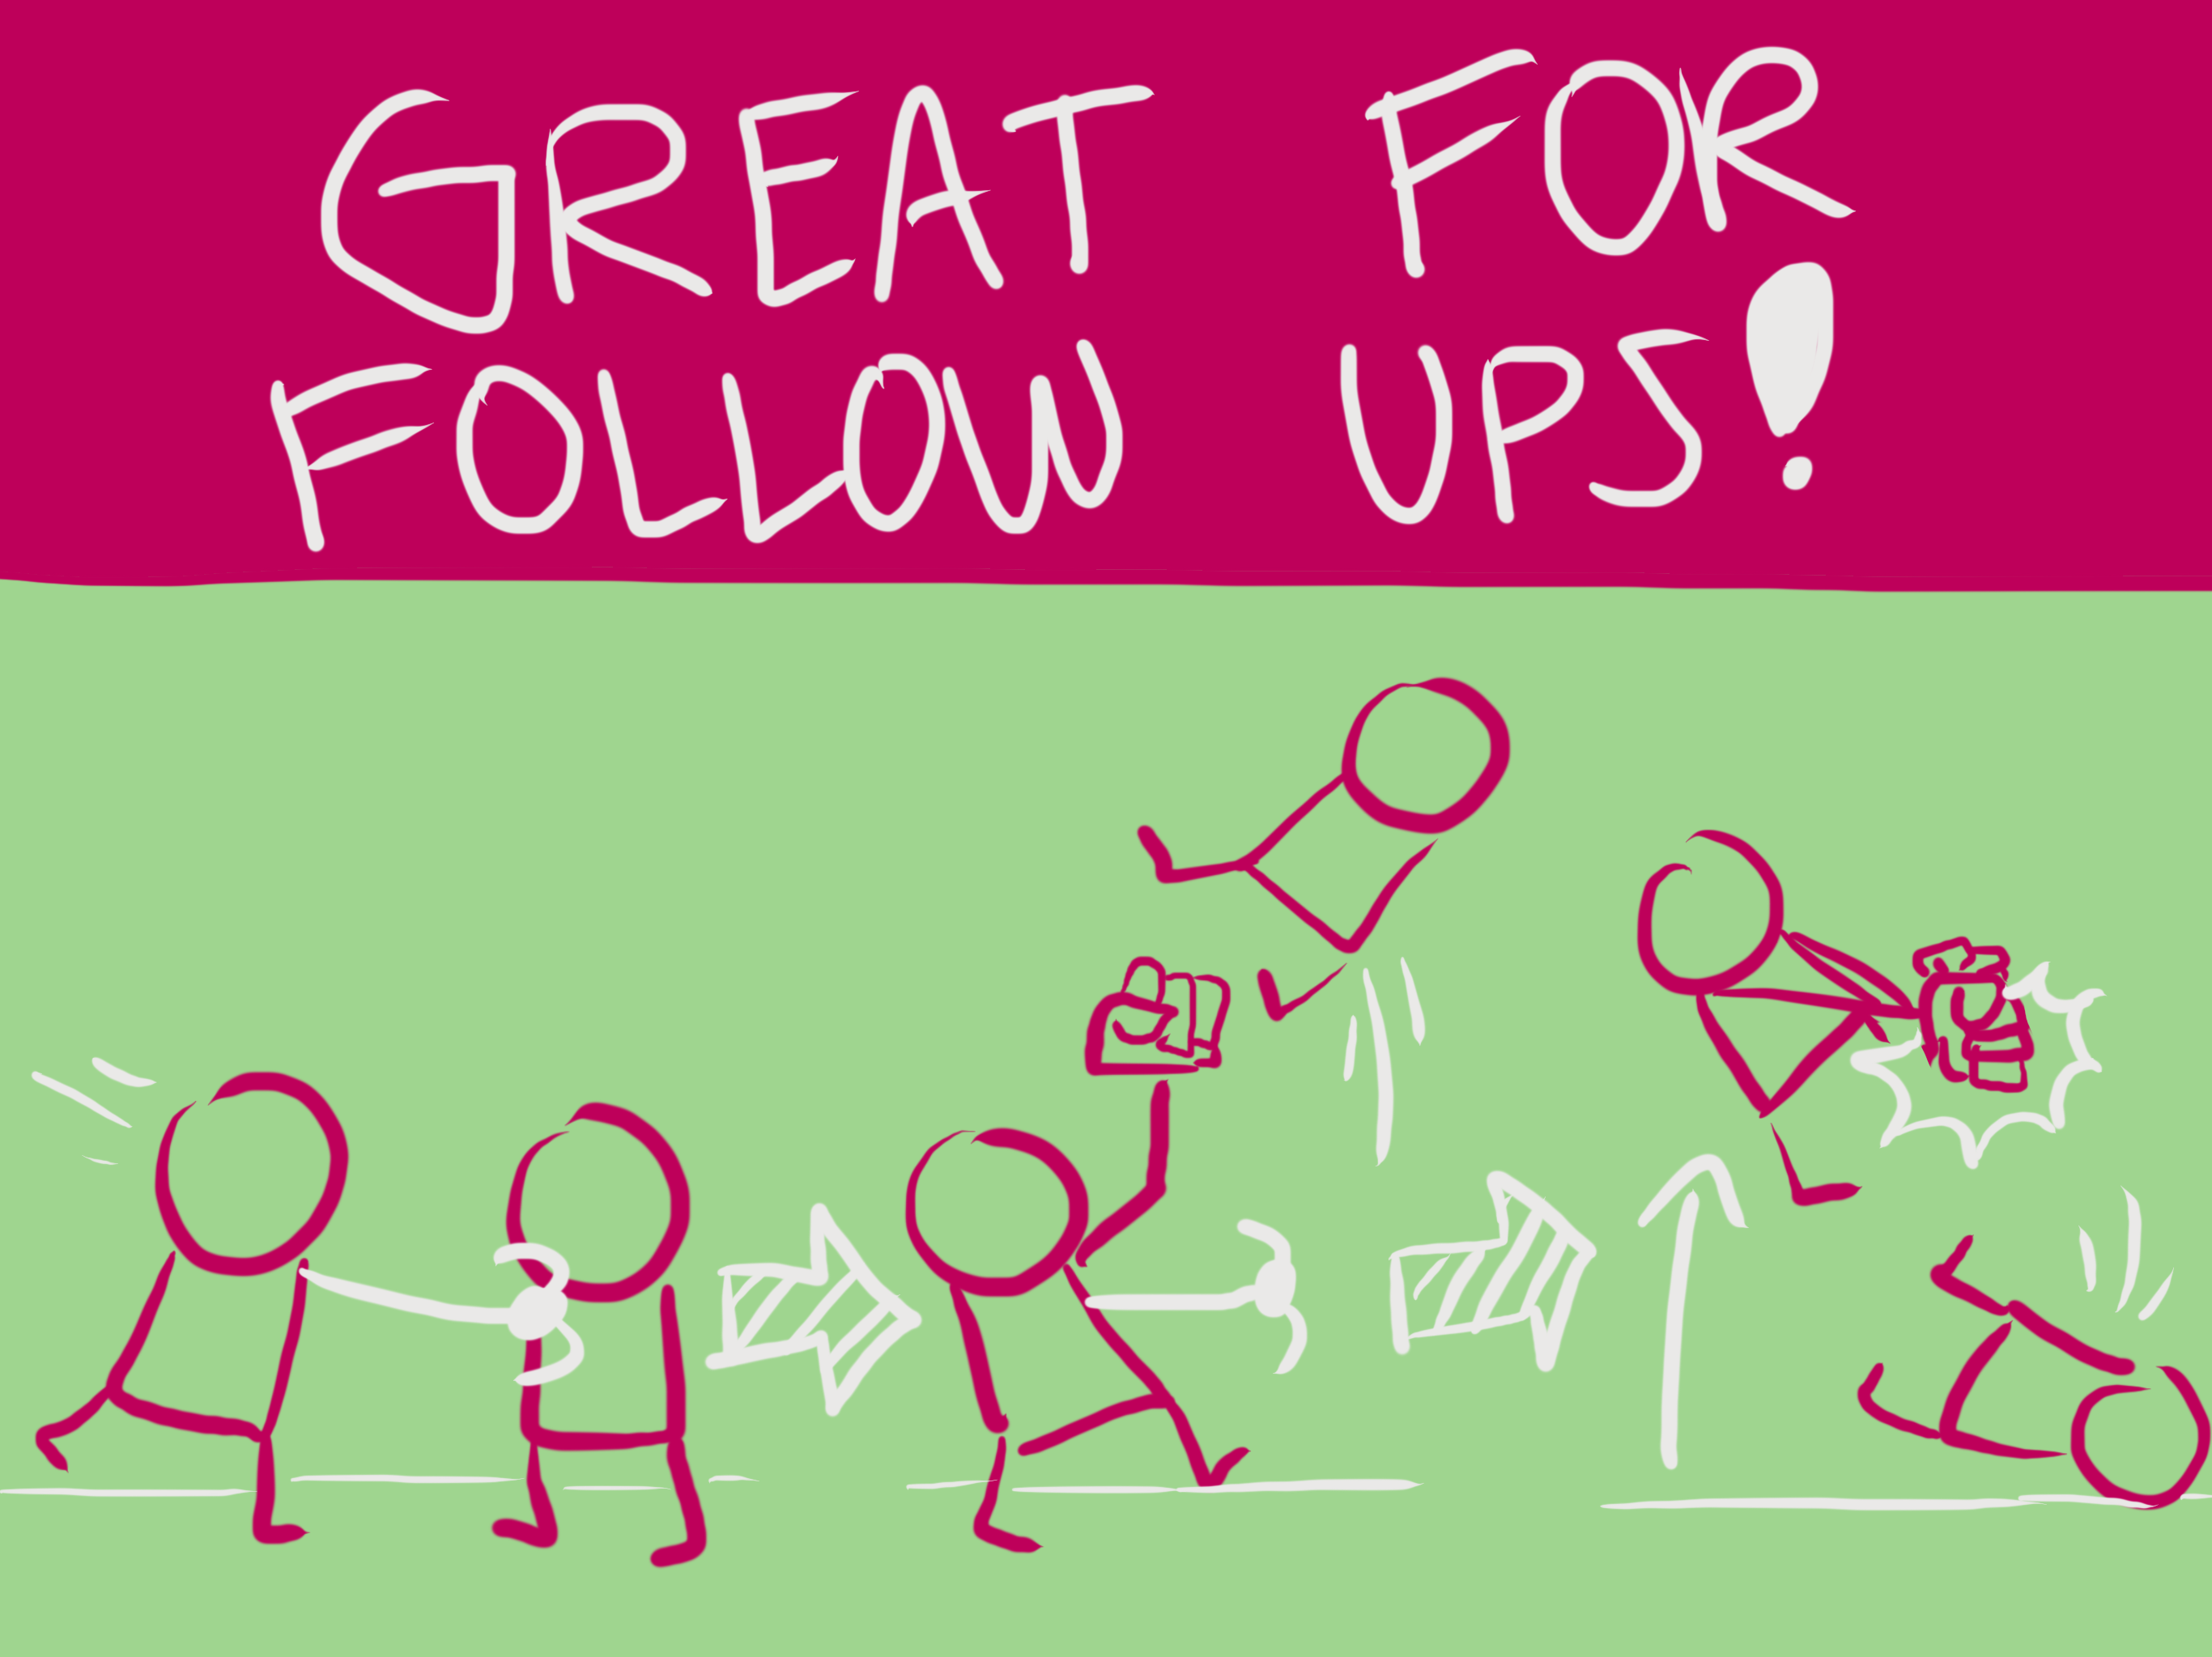 GREAT FOR
FOLLOW UPS!